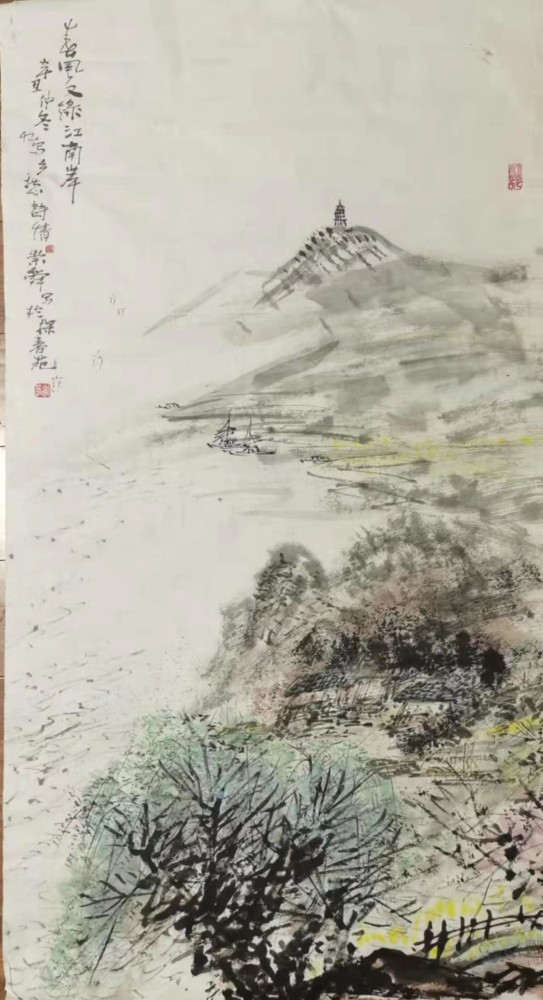 春风又绿江南岸
辛丑仲冬
忆写乡愁诗情
紫舜写於探春苑